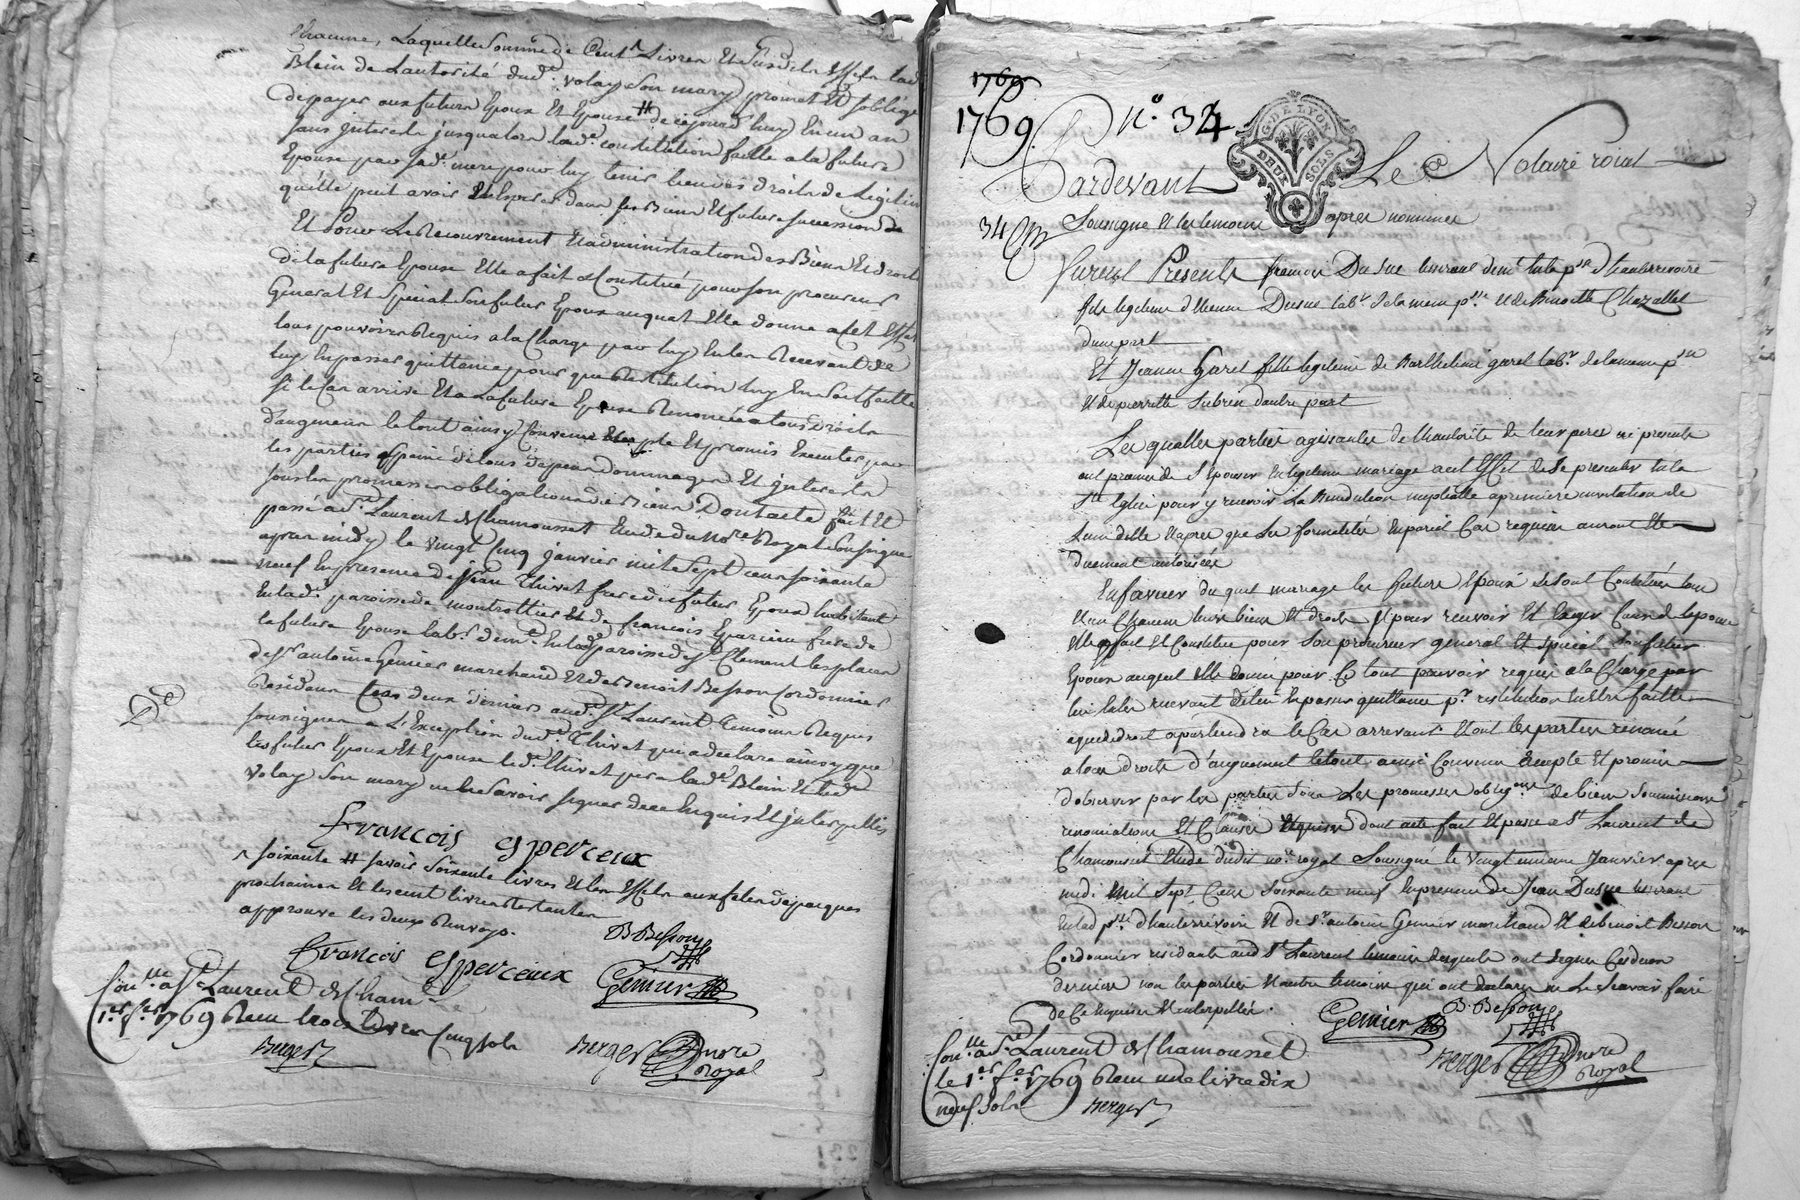 chacune, Laquelle Somme de Cent Livres Et Susdits Effets lad
Blein de Lautorité dud. volay Son mary promet Et Soblige
de payer aux futurs Epoux Et Epouse # de cejourd'huy En un an
sans jnterests jusqualors lad. constitution faitte a la future
Epouse par sad. mere pour luy tenir lieu des droits de Legitime
quelle peut avoir Et Esperer dans ses Biens Et future succession
Et Pour Le Recouvrement Et administration des Biens Et droits
de la future Epouse Elle a fait & Constitué pour son procureur
General Et Special Son futur Epoux auquel Elle donne a cet Effet
tous pouvoirs Requis a la Charge par luy En les Recevant de
luy En passer quittance pour que Restitution luy En Soit faitte
si le Cas arrive Et a La future Epouse Renoncée a tous droits
d'augment le tout ainsy Convenu Et promis Executer par
les parties a peine de tous depens dommages Et jnterests
sous les promesses obligations de Biens Dont acte fait Et
passé a St. Laurent de Chamousset Etude du no.re Royal Soussigné
apres midy le vingt Cinq janvier mil Sept cens soixante
neuf En presence de Jean Thivet frere du futur Epoux habitant
En lad. paroisse de montrottier Et de francois Esparcieu frere de
la future Epouse lab.r dem.t En lad. paroisse de St. Clement les places
de Sr. antoine Genier marchand Et de Benoit Besson Cordonnier
Residans Ces deux derniers aud. St. Laurent Temoins Requis
soussignés a L'Exception dud. Thivet qui a declaré ainsy que
les futurs Epoux Et Epouse led. Thivet pere lad. Blein Et led.
volay Son mary ne Le Savoir signer de ce Enquis Et jnterpellés
francois esperceux
soixante # savoir soixante livres Et les Effets aux fetes de paques
prochaines Et les cent livres Restantes
approuvé les deux Renvoys.
francois esperceux
B Besson
Genier
Con.lle a St. Laurent de Cham.
1.er f.er 1769 Recu trois livres Cinq sols
Berger
Berger no.re Royal
1769
1769. N.° 34
G. DE LYON
DEUX SOLS
Pardevant Le Notaire roial
Soussigné Et les temoins apres nommés
34
Furent Presents francois Dusuc tisserant dem.t En la p.sse d'hauterivoire
fils legitime d'Etienne Dusuc lab.r de la meme p.sse Et de Benoitte Chazallet
dune part
Et Jeanne Garel fille legitime de Barthelemi garel lab.r de la meme p.sse
Et de pierrette Subrin dautre part
Les quelles parties agissantes de l'autorité de leurs peres ici presents
ont promis de S'Epouser En legitime mariage a cet Effet de Se presenter En la
Ste Eglise pour y recevoir La Benediction nuptialle a premiere invitation de
Lun delle Et apres que Les formalités En pareil Cas requises auront Eté
duement observées
En faveur du quel mariage les futurs Epoux Se Sont Constitués tous
Et un Chacun leurs biens Et droits Et pour recevoir Et Exiger Ceux de lepouse
Elle a fait Et Constitue pour Son procureur general Et Special Son futur
Epoux auquel Elle donne pour Ce tout pouvoir requis a la Charge par
lui En les recevant d'En passer quittance p.r restitution En Etre faitte
a qui de droit apartiendra le Cas arrivant Et ont les parties renoncé
a tous droits d'augment le tout ainsi Convenu accepté Et promis
d'observer par les parties Sous Les promesses oblig.ons de biens Soumissions
renonciations Et Clauses Requises dont acte fait Et passé a St. Laurent de
Chamousset Etude dudit no.re royal Soussigné le vingt neuvieme Janvier apres
midi mil Sept Cens Soixante neuf En presence de Jean Dusuc tisserant
En lad p.sse d'hauterivoire Et de Sr. antoine Genier marchand Et de benoit Besson
Cordonnier residants aud St Laurent temoins desquels ont signé Ces deux
derniers non les parties Et autre temoins qui ont declaré ne Le Scavoir faire
de Ce Enquis Et interpellés.
Genier B. Besson
Con.lle a St. Laurent de Chamousset
le 1.er f.er 1769 Recu une livre dix
neuf Sols Berger
Berger no.re Royal